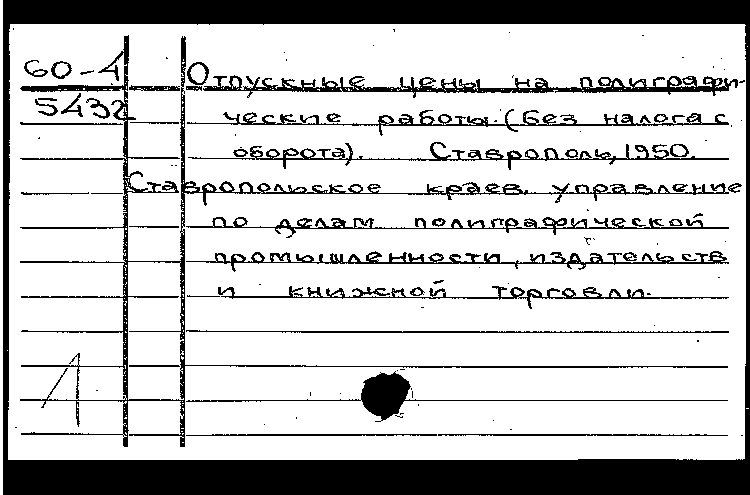 60-4 Отпускные цены на полиграфи-
5432 ческие работы. (Без налога с
оборота). Ставрополь, 1950.
Ставропольское краев. управление
по делам полиграфической
промышленности, издательств
и книжной торговли.
1